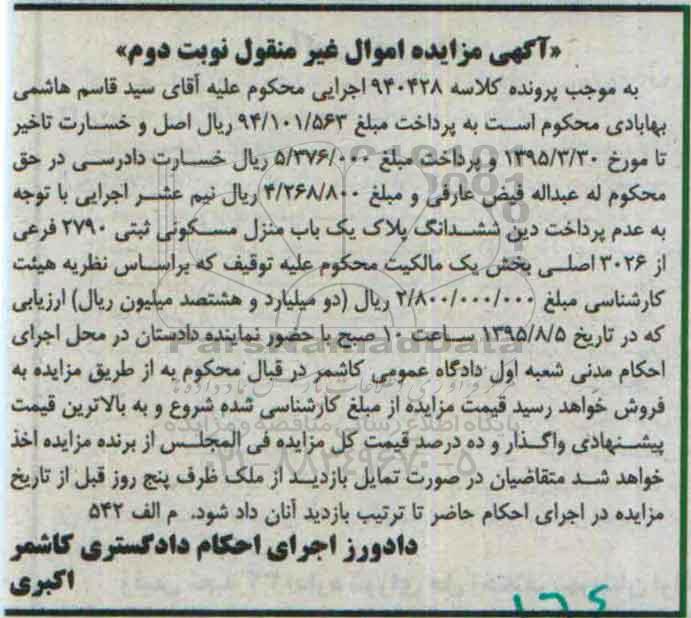 «آگهی مزایده اموال غیر منقول نوبت دوم»
به موجب پرونده کلاسه ۹۴۰۴۲۸ اجرایی محکوم علیه آقای سید قاسم هاشمی
بهابادی محکوم است به پرداخت مبلغ ۹۴/۱۰۱/۵۶۳ ریال اصل و خسارت تاخیر
تا مورخ ۱۳۹۵/۳/۳۰ و پرداخت مبلغ ۵/۳۷۶/۰۰۰ ریال خسارت دادرسی در حق
محکوم له عبداله فیض عارفی و مبلغ ۴/۲۶۸/۸۰۰ ریال نیم عشر اجرایی با توجه
به عدم پرداخت دین ششدانگ پلاک یک باب منزل مسکونی ثبتی ۲۷۹۰ فرعی
از ۳۰۲۶ اصلی بخش یک مالکیت محکوم علیه توقیف که براساس نظریه هیئت
کارشناسی مبلغ ۲/۸۰۰/۰۰۰/۰۰۰ ریال (دو میلیارد و هشتصد میلیون ریال) ارزیابی
که در تاریخ ۱۳۹۵/۸/۵ ساعت ۱۰ صبح با حضور نماینده دادستان در محل اجرای
احکام مدنی شعبه اول دادگاه عمومی کاشمر در قبال محکوم به از طریق مزایده به
فروش خواهد رسید قیمت مزایده از مبلغ کارشناسی شده شروع و به بالاترین قیمت
پیشنهادی واگذار و ده درصد قیمت کل مزایده فی المجلس از برنده مزایده اخذ
خواهد شد متقاضیان در صورت تمایل بازدید از ملک ظرف پنج روز قبل از تاریخ
مزایده در اجرای احکام حاضر تا ترتیب بازدید آنان داد شود. م الف ۵۴۲
دادورز اجرای احکام دادگستری کاشمر
اکبری
ParsNamadData
پایگاه اطلاع رسانی مناقصه و مزایده
۰۲۱-۸۸۳۴۹۶۷۰-۵